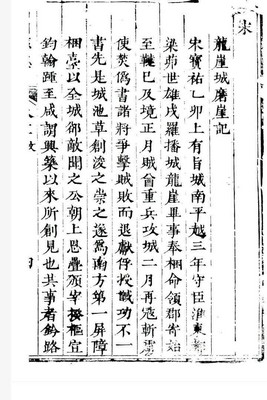 宋
龍崖城磨崖記
宋寶祐乙卯上有旨城南平越三年守臣淮東
梁茆世雄戍羅播城龍崖畢事奉梱命領郡寄始
至韃已及境正月賊酋重兵攻城二月再寇斬
使焚僞書諸將爭擊賊敗而退獻俘授馘功不一
書先是城池草創浚之崇之遂為南方第一屏障
梱臺以全城郤敵聞之公朝上恩疊頒宰揆樞宣
鈞翰踵至咸謂興築以來所創見也其事者鈐路